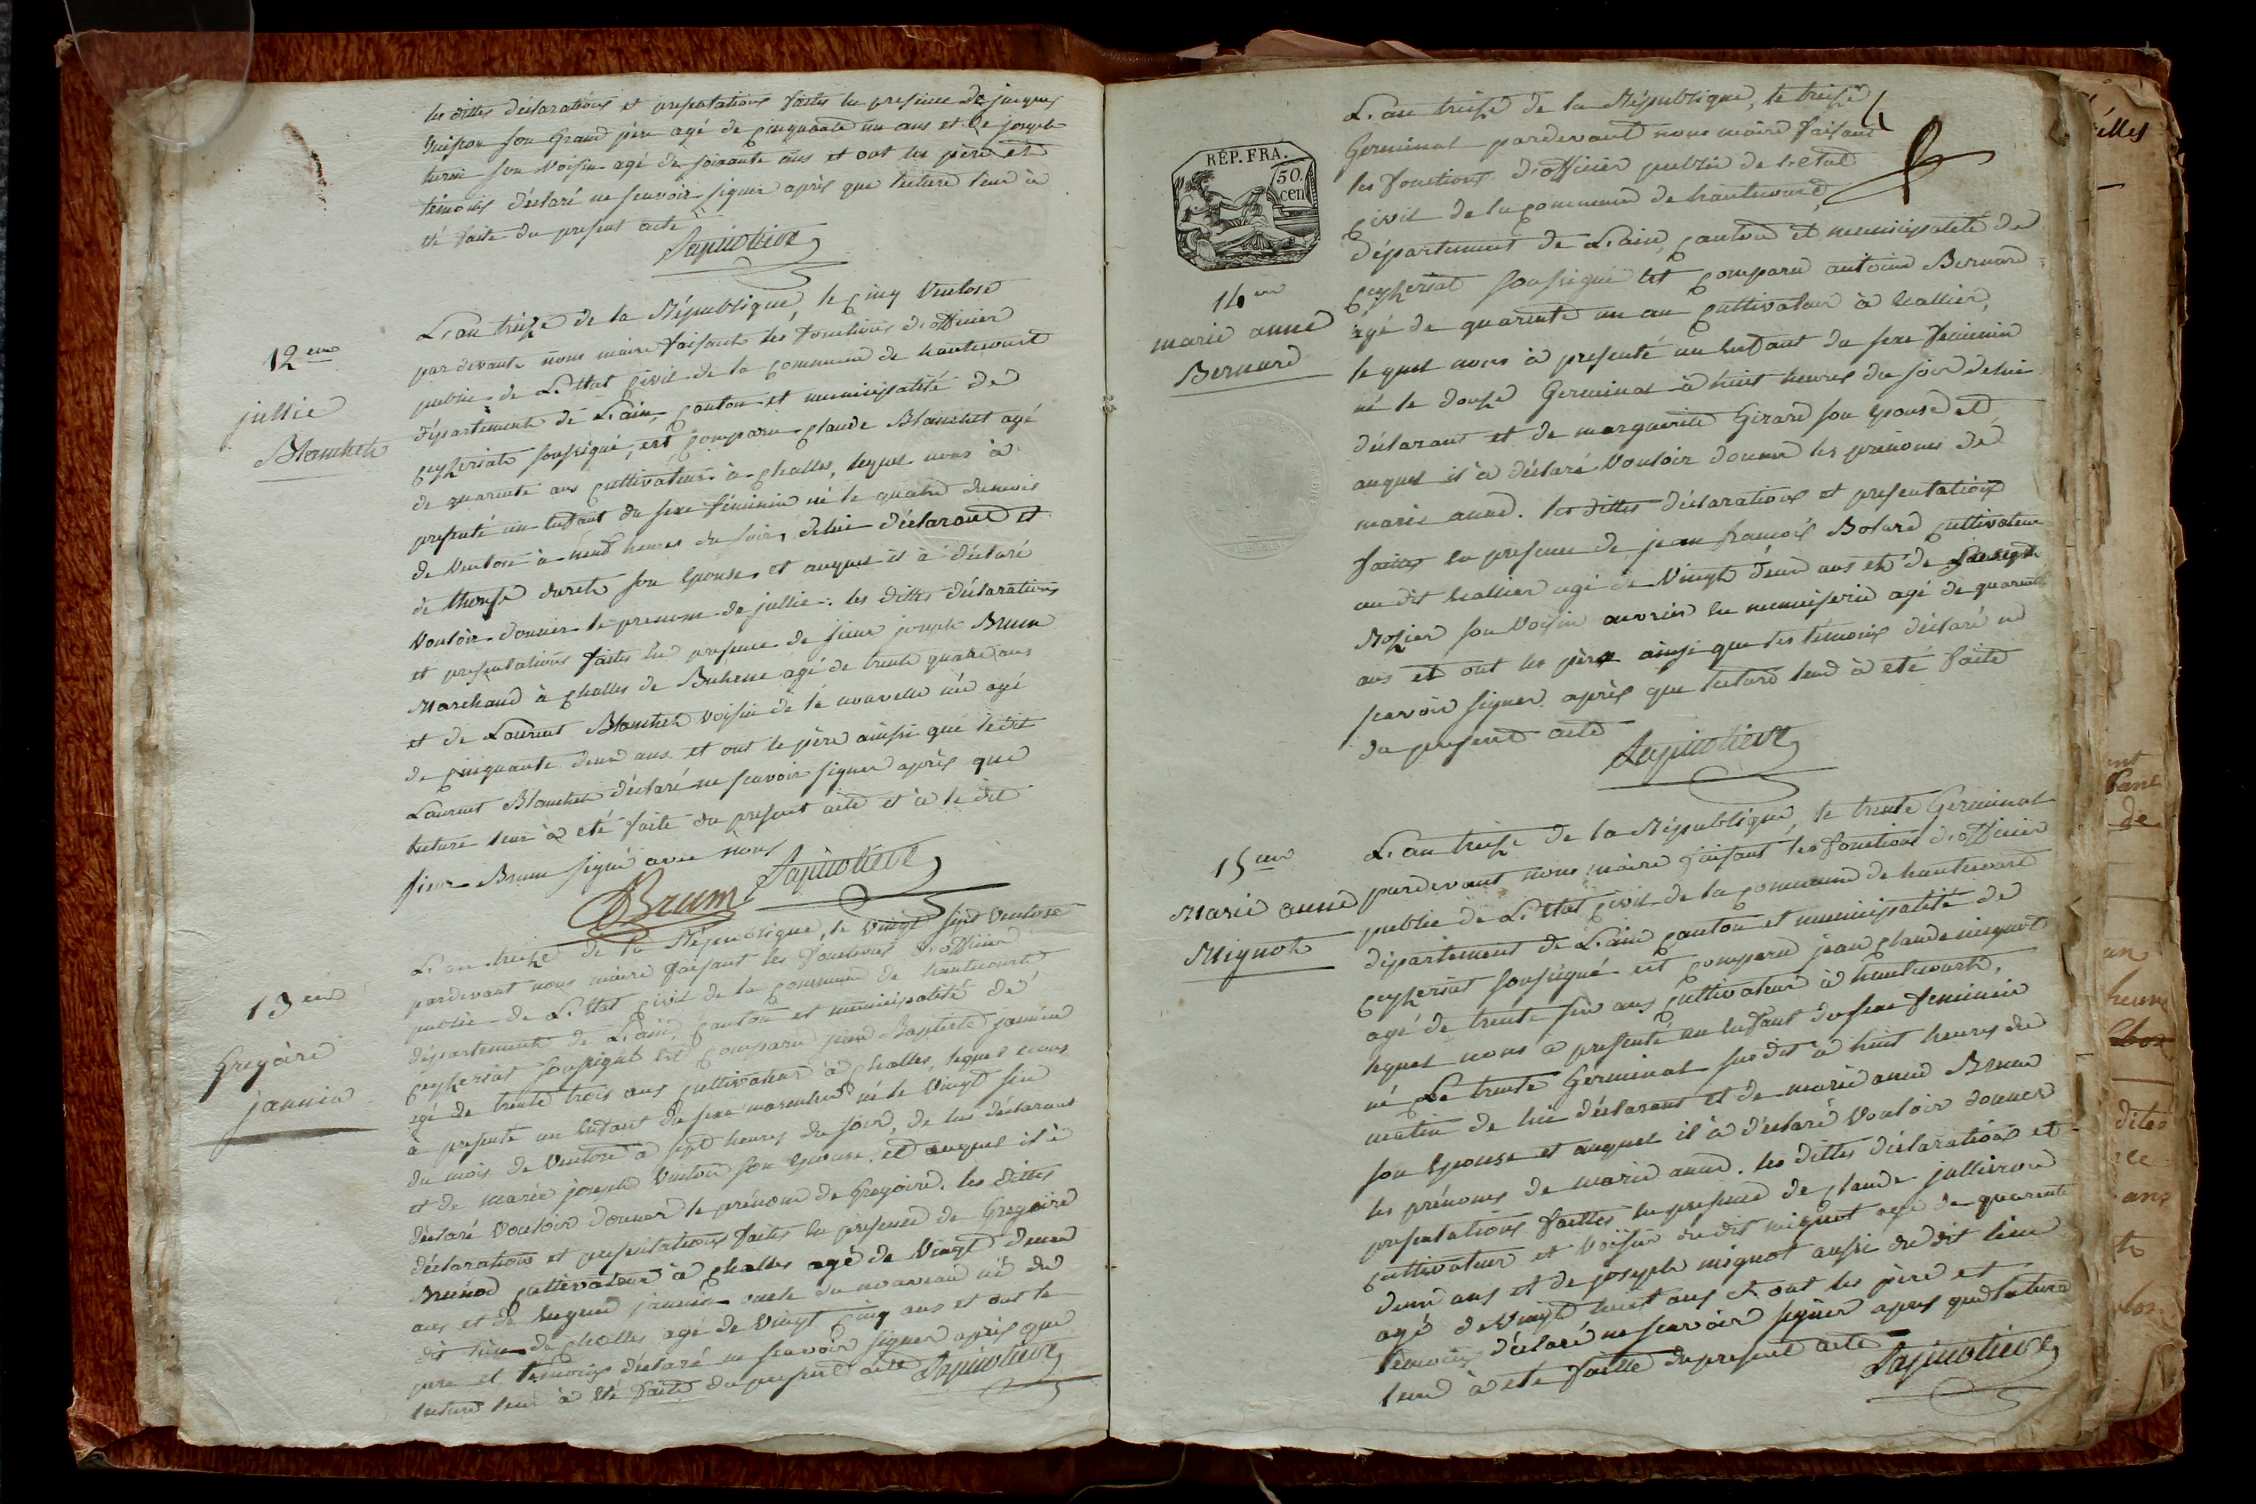 les dittes déclarations et presentations faites en presence de jacques
son Grand père agé de cinquante un ans et de joseph
son voisin agé de soixante ans et ont les père et
témoins déclaré ne scavoir signer après que lecture leur à
été faite du present acte
12eme
jullie
Blanchet
L'an treize de la République, le cinq Ventose
par devant nous maire faisant les fonctions d'officier
public de L'Etat civil de la commune de hautecourt
département de L'ain, canton et municipalité de
ceyzeriat soussigné, est comparu claude Blanchet agé
de quarente ans cultivateur à challes, lequel nous à
presenté un enfant du sexe féminin né le quatre du mois
de Ventose à neuf heures du soir, de lui déclarant et
de therese son Epouse, et auquel il à déclaré
Vouloir donner le prenom de jullie. les dittes déclarations
et presentations faites en presence de sieur joseph Brun
Marchand à challes de Bohene agé de trente quatre ans
et de Laurent Blanchet voisin de la nouvelle née agé
de cinquante deux ans et ont le père ainsi que ledit
Laurent Blanchet déclaré ne scavoir signer après que
lecture leur à eté faite du present acte et à le dit
sieur Brun signé avec nous
Brun
13eme
Gregoire
jannin
L'an treize de la République, le vingt sept Ventose
pardevant nous maire faisant les fonctions d'officier
public de L'Etat civil de la commune de hautecourt
département de L'ain, canton et municipalité de
ceyzeriat soussigné est comparu jean Baptiste jannin
agé de trente trois ans cultivateur à challes, lequel nous
à presenté un enfant du sexe masculin né le vingt six
du mois de Ventose à sept heures du soir, de lui déclarant
et de marie joseph son Epouse, et auquel il à
déclaré Vouloir donner le prénom de Gregoire. les dittes
déclarations et presentations faites en presence de Gregoire
cultivateur à challes agé de Vingt deux
ans et de jannin oncle du nouveau né du
dit lieu de challes agé de vingt cinq ans et ont le
pere et témoins déclaré ne scavoir signer après que
lecture leur à été faite du present acte
RÉP. FRA.
50.
cen
14eme
marie anne
Bernard
L'an treize de la République, le treize
Germinal pardevant nous maire faisant
les fonctions d'officier public de l'etat
civil de la commune de hautecourt,
département de L'ain, canton et municipalité de
ceyzeriat soussigné est comparu antoine Bernard
agé de quarente un an cultivateur à
lequel nous à presenté un enfant du sexe feminin
né le douze Germinal à huit heures du soir de lui
déclarant et de marguerite Girard son Epouse et
auquel il à déclaré Vouloir donner les prénoms de
marie anne. les dittes déclarations et presentations
faites en presence de jean françois cultivateur
au dit agé de Vingt deux ans et de
son Voisin ouvrier en menuiserie agé de quarente
ans et ont les père ainsi que les témoins déclaré ne
scavoir signer après que lecture leur à eté faite
du present acte
15eme
Marie anne
Mignot
L'an treize de la République, le trente Germinal
pardevant nous maire faisant les fonctions d'officier
public de L'Etat civil de la commune de hautecourt
département de L'ain canton et municipalité de
ceyzeriat soussigné est comparu jean claude mignot
agé de trente six ans cultivateur à hautecourt,
lequel nous à presenté un enfant du sexe feminin
né Le trente Germinal susdit à huit heures du
matin de lui déclarant et de marie anne Brun
son Epouse et auquel il à déclaré Vouloir donner
les prénoms de marie anne. les dittes déclarations et
presentations faittes en presence de claude jullieron
cultivateur et Voisin du dit mignot agé de quarente
deux ans et de joseph mignot aussi du dit lieu
agé de vingt huit ans et ont les père et
témoins déclaré ne scavoir signer apres que lecture
leur à eté faitte du present acte